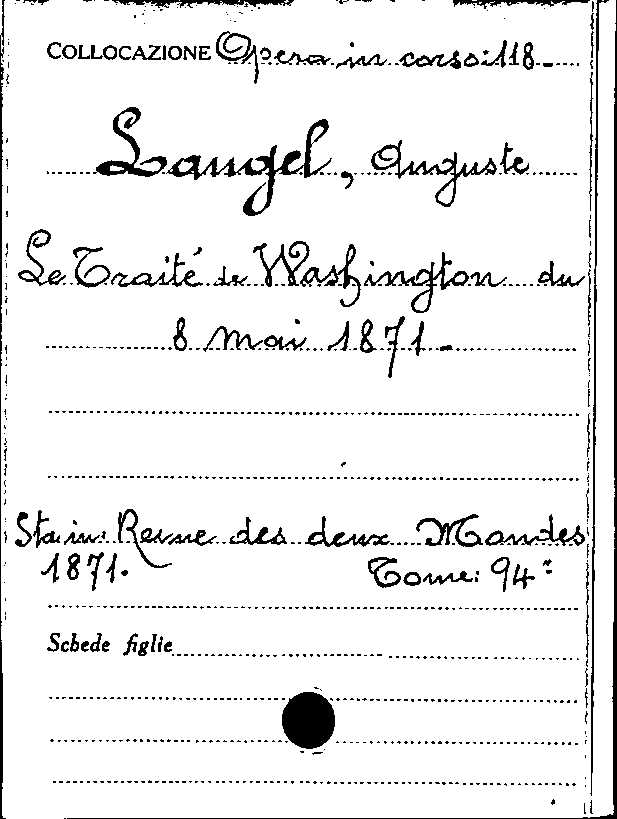 COLLOCAZIONE Opera in corso: 118-
Laugel, Auguste
Le Traité de Washington du
8 mai 1871-
Sta in: Revue des deux Mondes
1871. Tome: 94º
Schede figlie